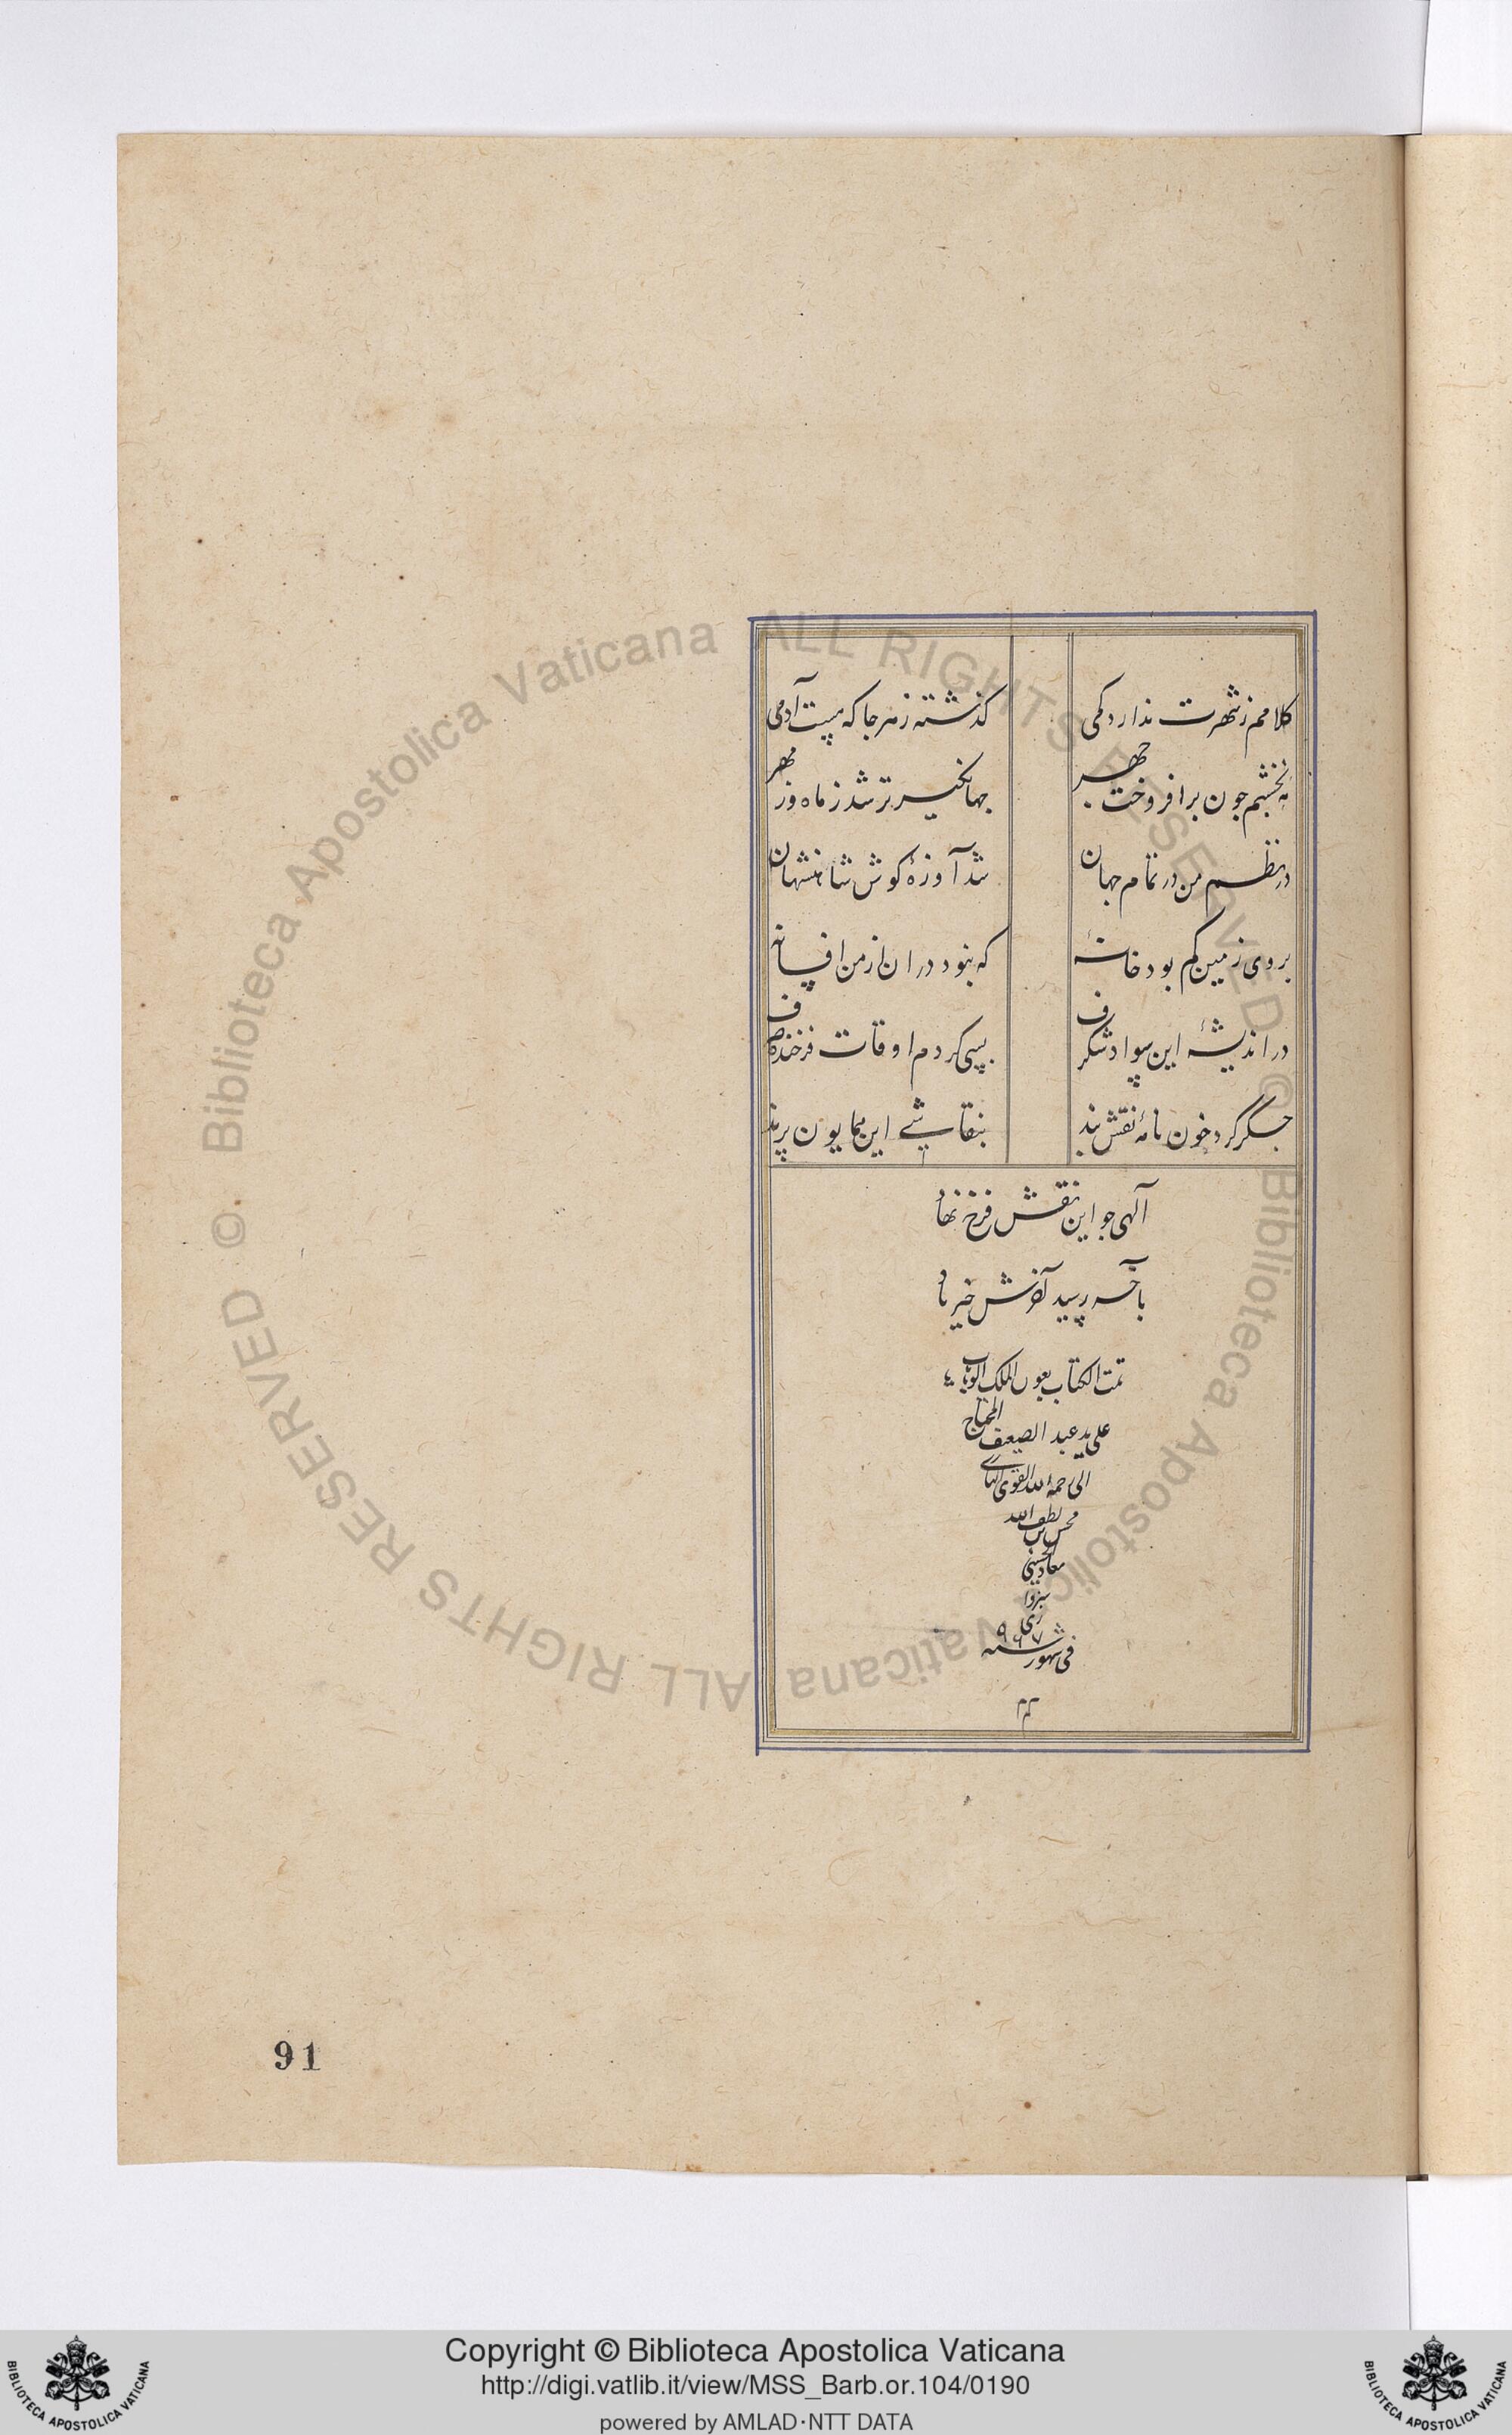 کلامم ز شهرت ندارد کمی گذشته ز هر جا که هست آدمی
بخشبم جون برافروخت جهر جهانکیر تر شد ز ماه و ز مهر
در نظم من در تمام جهان شد آوزهٔ کوش شاهنشهان
بروی زمین کم بود خانهٔ که نبود در ان از من افسانه
در اندیشهٔ این سواد شکرف بسی کردم اوقات فرخنده صرف
جکر کرد خون نامهٔ نقش بند بنقاشی این همایون پرند
آلهی جو این نقش فرخ نهاد
بآخر رسید آخرش خیر باد
تمت الکتاب بعون الملک الوهاب
علی ید عبد الضعیف المحتاج
الی رحمة الله القوی الباری
محسن بن لطف الله
معاد حسینی
سبزوا
ری
فی شهور سنه ۹۶۷
م م
91
ALL RIGHTS RESERVED © Biblioteca Apostolica Vaticana
ALL RIGHTS RESERVED © Biblioteca Apostolica Vaticana
BIBLIOTECA APOSTOLICA VATICANA
Copyright © Biblioteca Apostolica Vaticana
http://digi.vatlib.it/view/MSS_Barb.or.104/0190
powered by AMLAD·NTT DATA
BIBLIOTECA APOSTOLICA VATICANA